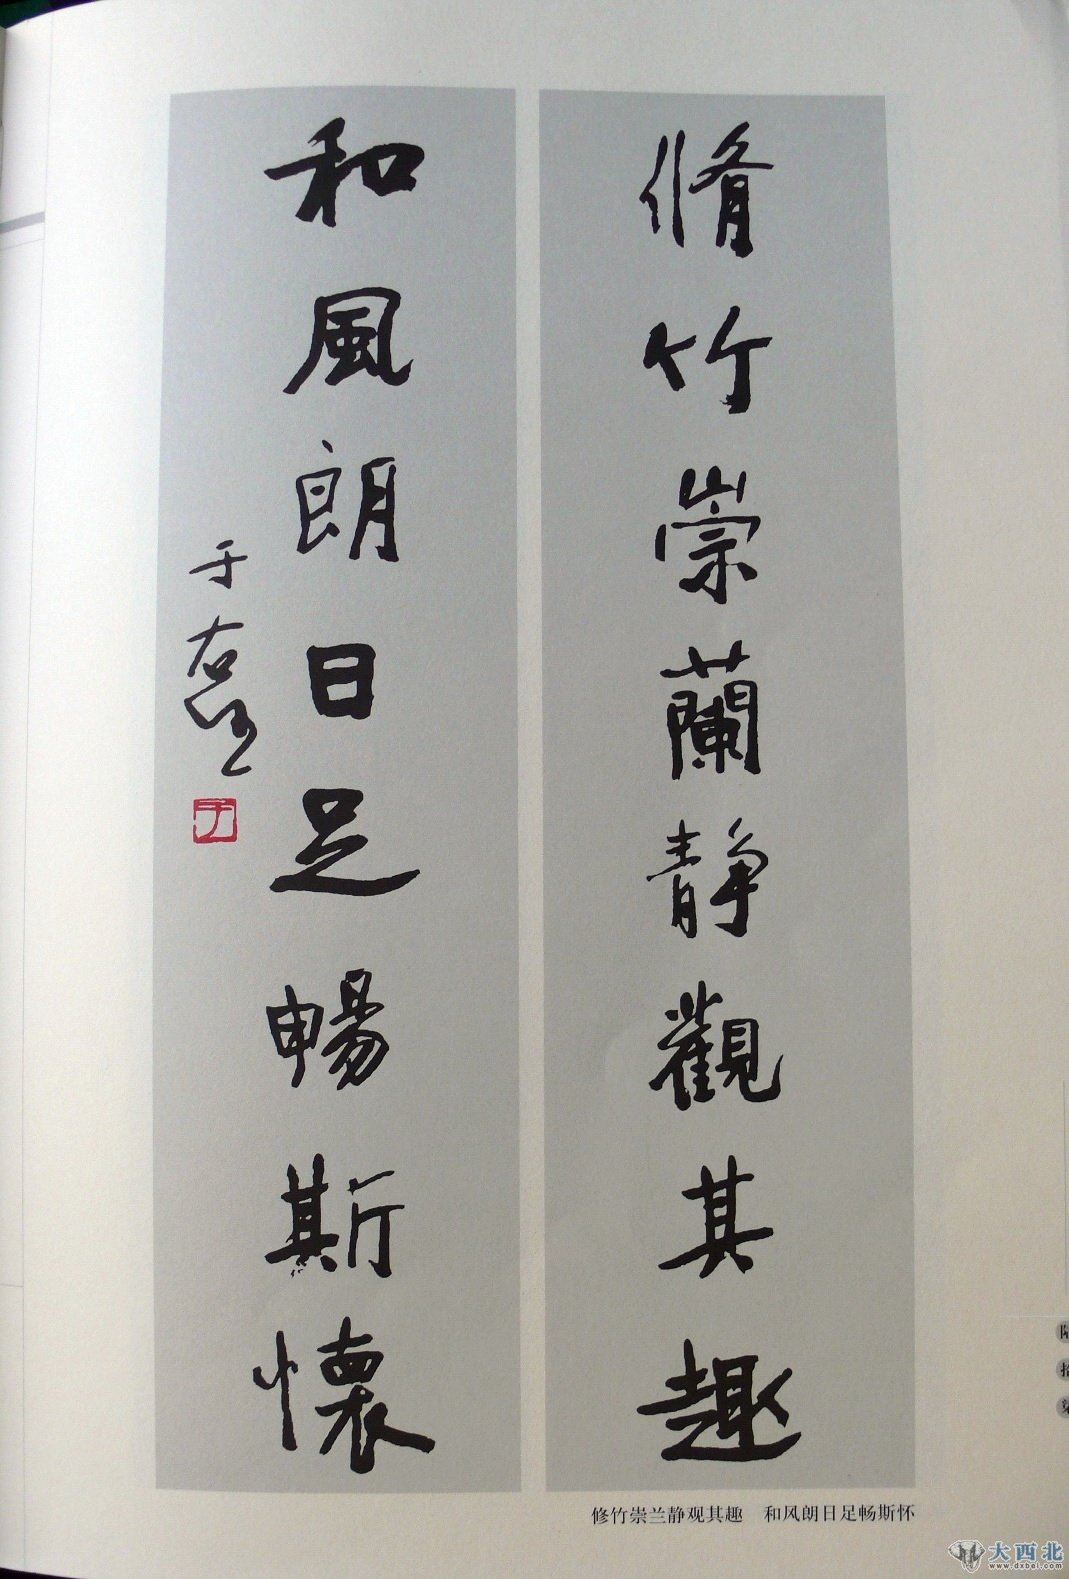 脩竹崇蘭靜觀其趣
和風朗日足暢斯懷
于右任
于
修竹崇兰静观其趣　和风朗日足畅斯怀
大西北
www.dxbei.com